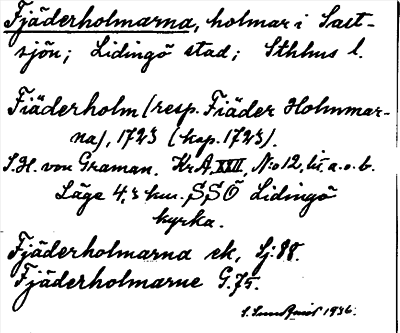 Fjäderholmarna, holmar i Salt-
sjön; Lidingö stad; Sthlms l.
Fiäderholm (resp. Fiäder Holmmar-
na), 1723 (kop. 1723).
S.H. von Graman. KrA, XXII, N:o 12, lit. a.o.b.
Läge 4,3 km. SSÖ Lidingö
kyrka.
Fjäderholmarna ek, Sj:88.
Fjäderholmarne G.75.
S. Sundquist 1936.